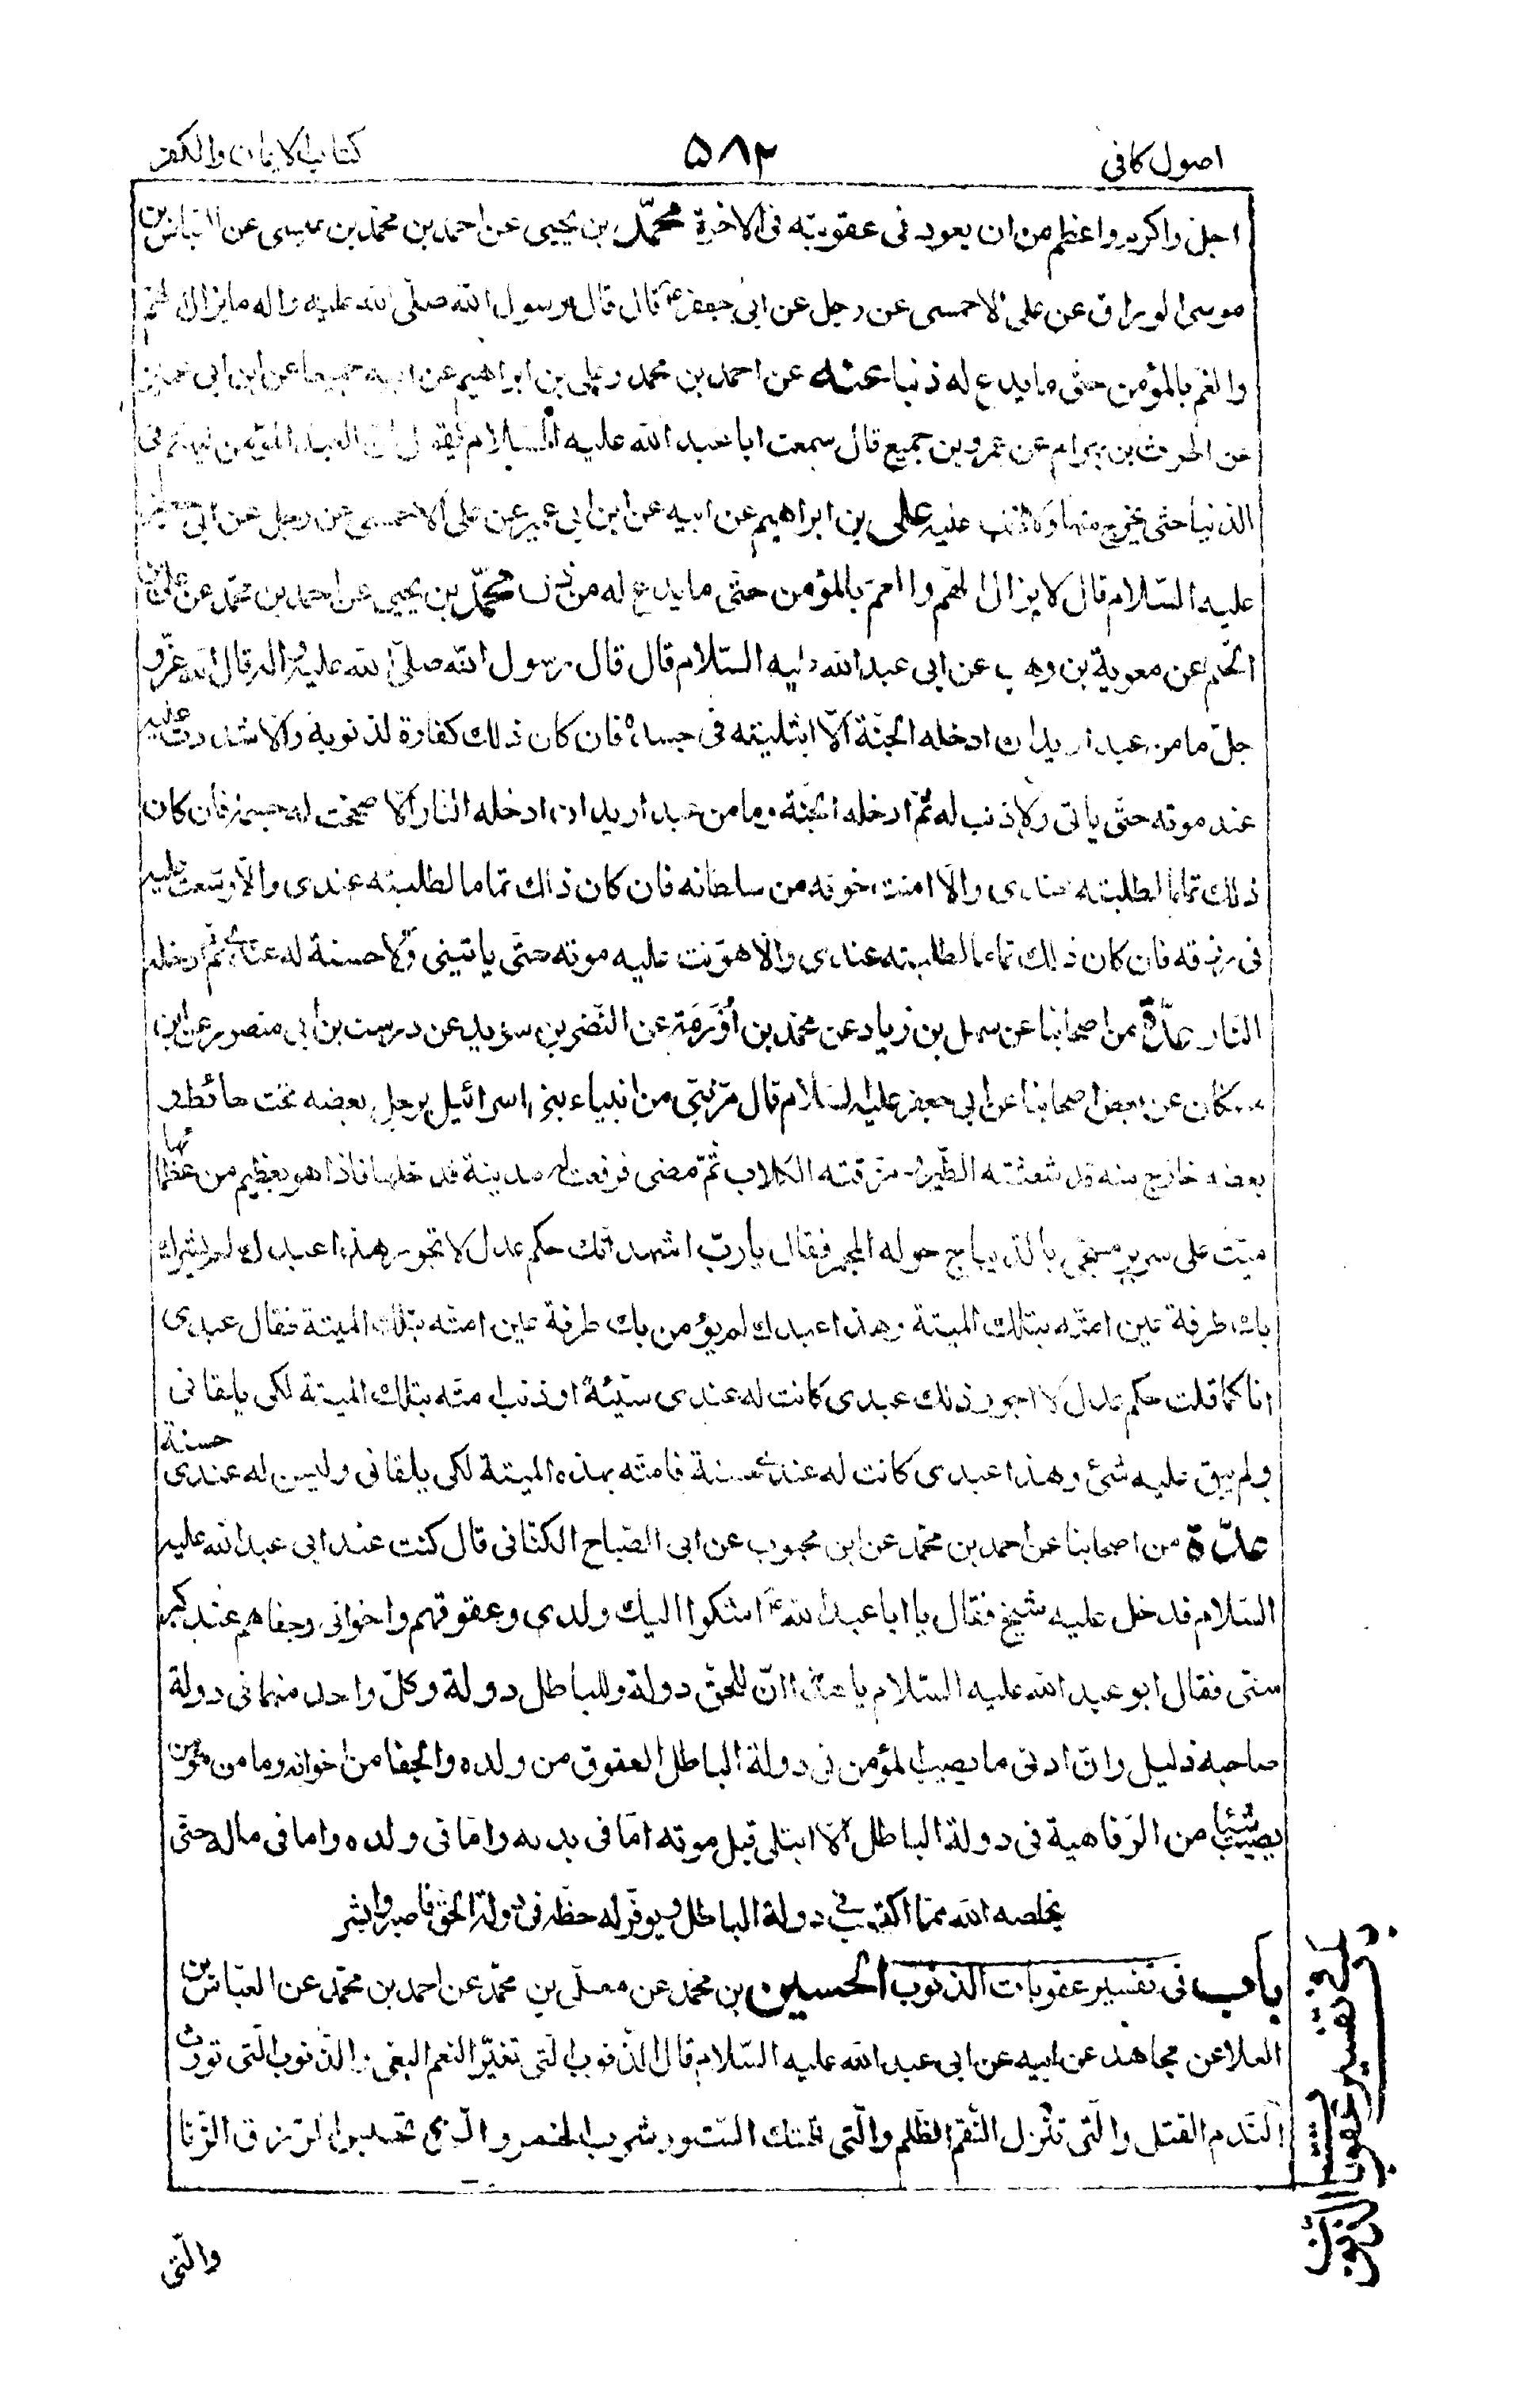 اصول كافى ۵۸۲ كتاب الايمان والكفر
اجل واكرم واعظم من ان يعود فى عقوبته فى الاخرة محمّد بن يحيى عن احمد بن محمّد بن عيسى عن العباس بن
موسى الوراق عن على الاحمسى عن رجل عن ابى جعفر ع قال قال رسول الله صلّى الله عليه واله ما يزال الهم
والغم بالمؤمن حتّى ما يدع له ذنبا عنه عن احمد بن محمد وعلى بن ابراهيم عن ابيه جميعا عن ابن ابى عمير
عن الحرث بن بهرام عن عمرو بن جميع قال سمعت ابا عبد الله عليه السّلام يقول انّ العبد المؤمن ليهتم فى
الدّنيا حتّى يخرج منها ولا ذنب عليه على بن ابراهيم عن ابيه عن ابن ابى عمير عن على الاحمسى عن رجل عن ابى جعفر
عليه السّلام قال لا يزال الهم والغم بالمؤمن حتّى ما يدع له من ذنب محمّد بن يحيى عن احمد بن محمّد عن على بن
الحكم عن معوية بن وهب عن ابى عبد الله عليه السّلام قال قال رسول الله صلّى الله عليه واله قال الله عزّ و
جلّ ما من عبد اريد ان ادخله الجنّة الّا ابتليته فى جسده فان كان ذلك كفارة لذنوبه والّا شددت عليه
عند موته حتّى ياتى ولا ذنب له ثمّ ادخله الجنّة وما من عبد اريد ان ادخله النار الّا صححت له جسمه فان كان
ذلك تماما لطلبته عندى والّا امنت خوفه من سلطانه فان كان ذلك تماما لطلبته عندى والّا وسّعت عليه
فى رزقه فان كان ذلك تماما لطلبته عندى والّا هوّنت عليه موته حتّى ياتينى ولا حسنة له عندى ثمّ ادخله
النار عدّة من اصحابنا عن سهل بن زياد عن محمّد بن اُوْرَمَة عن النّضر بن سويد عن درست بن ابى منصور عن ابن
مسكان عن بعض اصحابنا عن ابى جعفر عليه السّلام قال مرّ نبىّ من انبياء بنى اسرائيل برجل بعضه تحت حائط و
بعضه خارج منه قد شعثته الطّير ومزقته الكلاب ثمّ مضى فرفعت له مدينة فدخلها فاذا هو بعظيم من عظمائها
ميّت على سرير مسجّى بالدّيباج حوله المجمر فقال يا ربّ اشهد انّك حكم عدل لا تجور هذا عبدك لم يشرك
بك طرفة عين امتّه بتلك الميتة وهذا عبدك لم يؤمن بك طرفة عين امتّه بتلك الميتة فقال عبدى
انا كما قلت حكم عدل لا اجور ذلك عبدى كانت له عندى سيّئة او ذنب امتّه بتلك الميتة لكى يلقانى
ولم يبق عليه شئ وهذا عبدى كانت له عندى حسنة فامتّه بهذه الميتة لكى يلقانى وليس له عندى حسنة
عدّة من اصحابنا عن احمد بن محمّد عن ابن محبوب عن ابى الصّباح الكنانى قال كنت عند ابى عبد الله عليه
السّلام فدخل عليه شيخ فقال يا ابا عبد الله ع اشكوا اليك ولدى وعقوقهم واخوانى وجفاهم عند كبر
سنّى فقال ابو عبد الله عليه السّلام يا هذا انّ للحقّ دولة وللباطل دولة وكلّ واحد منهما فى دولة
صاحبه ذليل وانّ ادنى ما يصيب المؤمن فى دولة الباطل العقوق من ولده والجفا من اخوانه وما من مؤمن
يصيب شيئا من الرّفاهية فى دولة الباطل الّا ابتلى قبل موته امّا فى بدنه وامّا فى ولده واما فى ماله حتّى
يخلصه الله ممّا اكتسب فى دولة الباطل ويوفّر له حظّه فى دولة الحقّ فاصبر وابشر
باب فى تفسير عقوبات الذنوب الحسين بن محمّد عن معلّى بن محمّد عن احمد بن محمّد عن العبّاس بن
العلا عن مجاهد عن ابيه عن ابى عبد الله عليه السّلام قال الذّنوب الّتى تغيّر النّعم البغى والذّنوب الّتى تورث
النّدم القتل والّتى تنزل النّقم الظّلم والّتى تهتك السّتور شرب الخمر والّتى تحبس الرّزق الزّنا
والّتى
باب فى تفسير عقوبات الذنوب